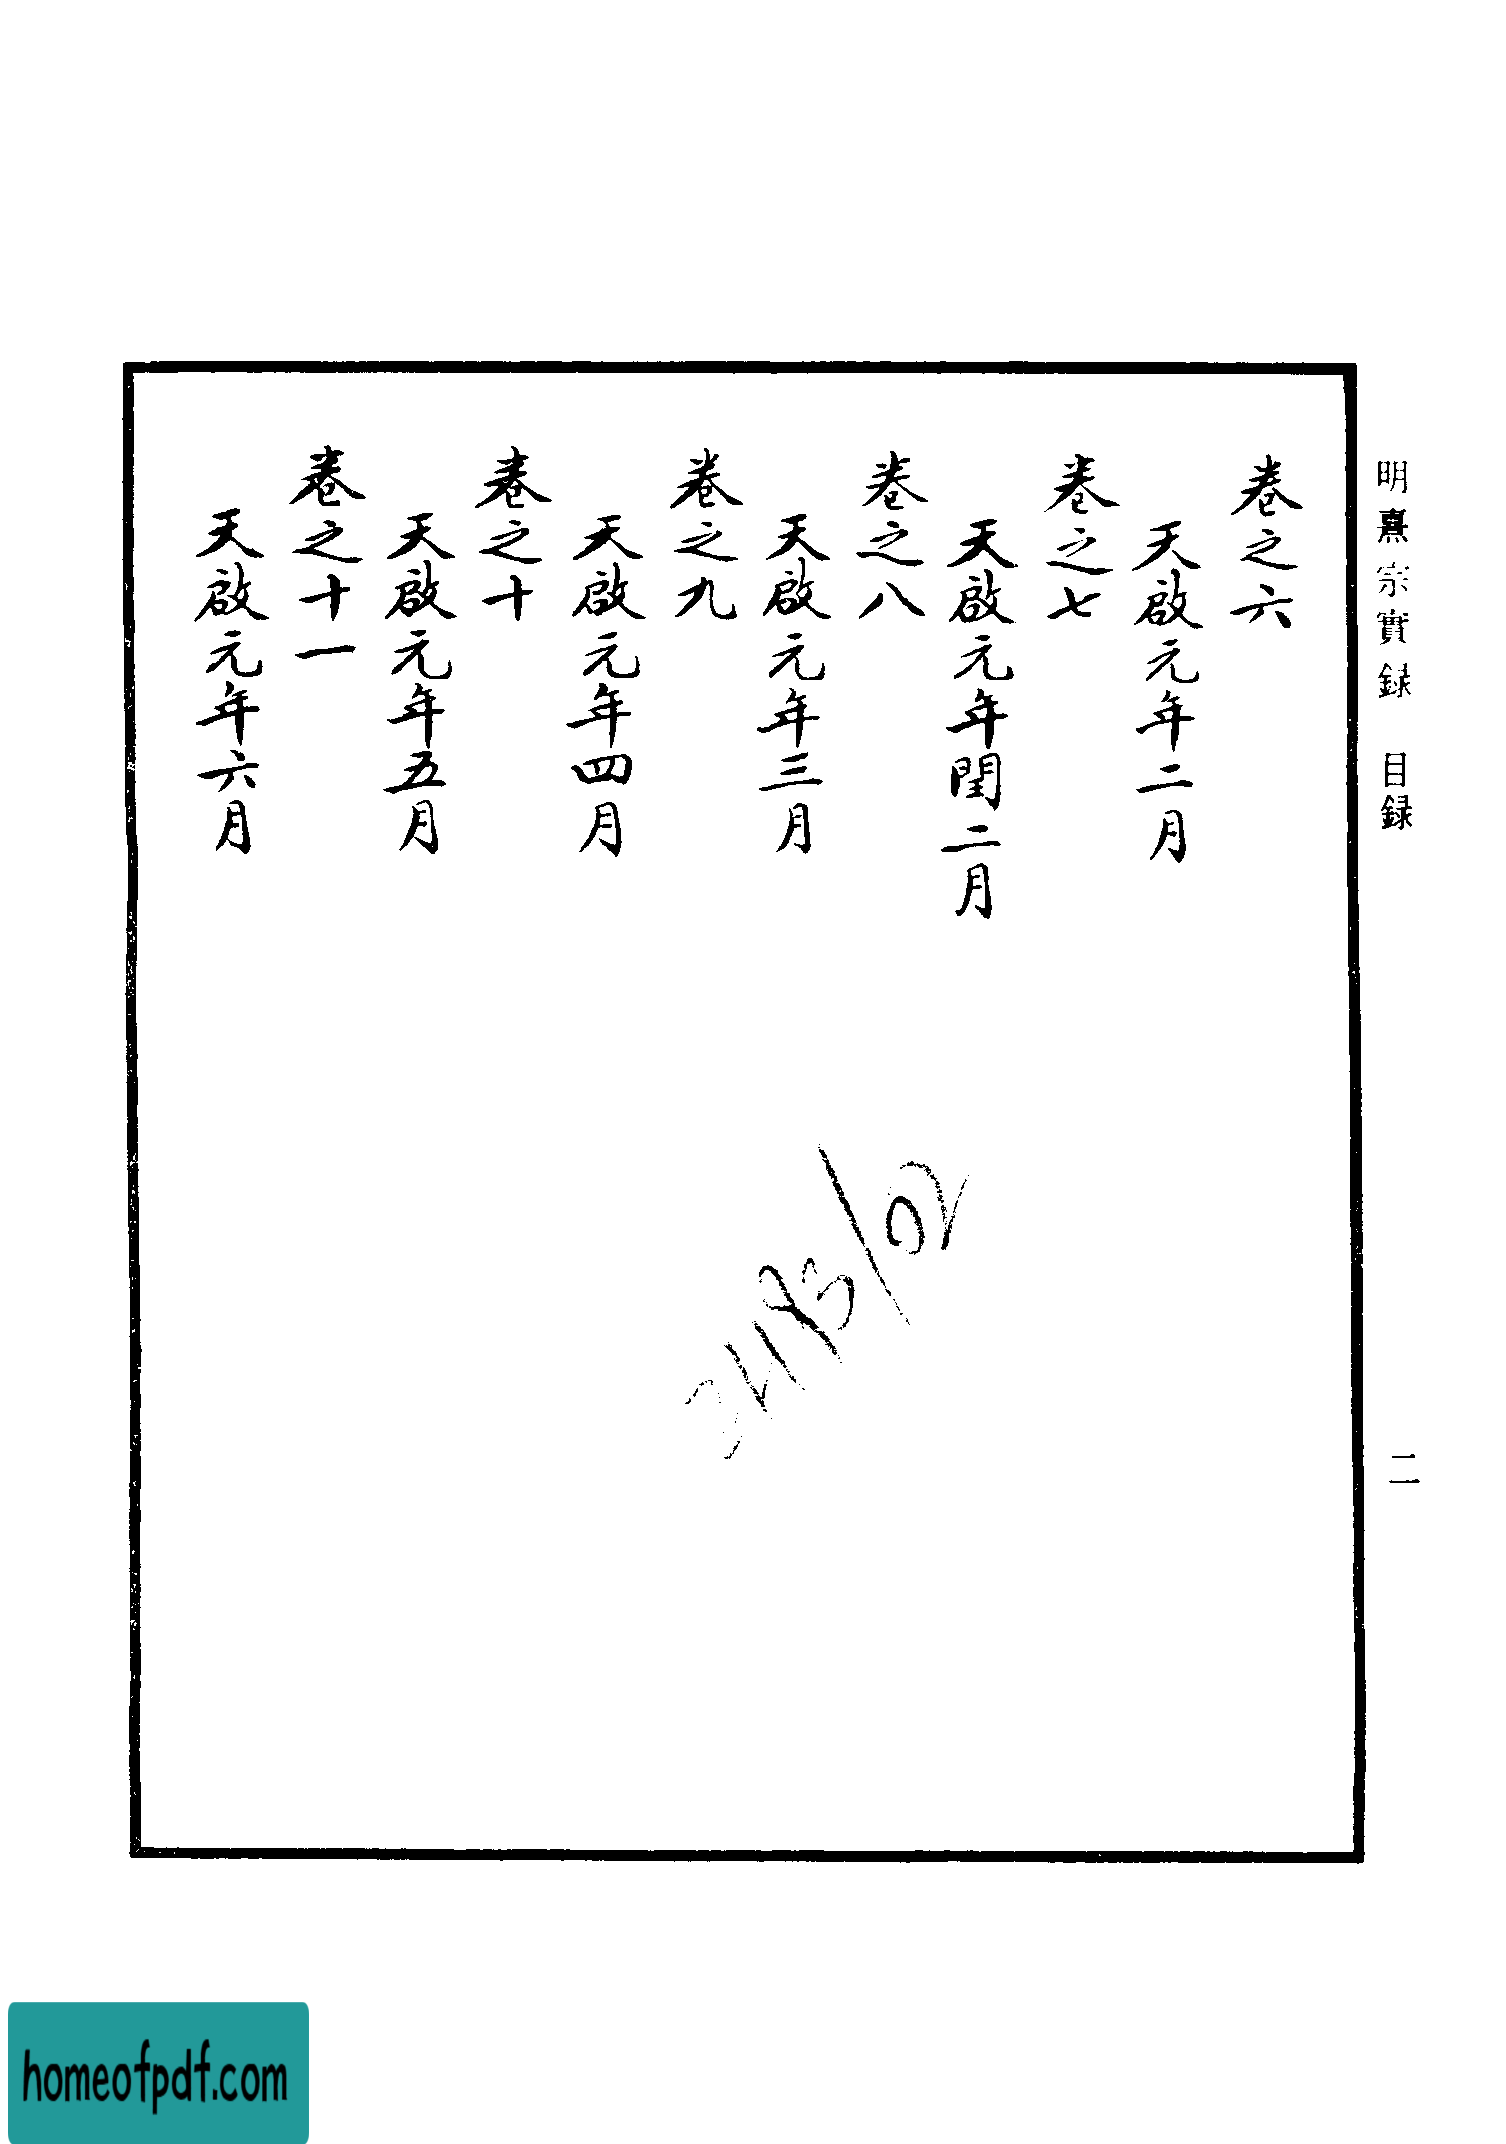 明熹宗實録　目録
二
卷之六
天啟元年二月
卷之七
天啟元年閏二月
卷之八
天啟元年三月
卷之九
天啟元年四月
卷之十
天啟元年五月
卷之十一
天啟元年六月
homeofpdf.com